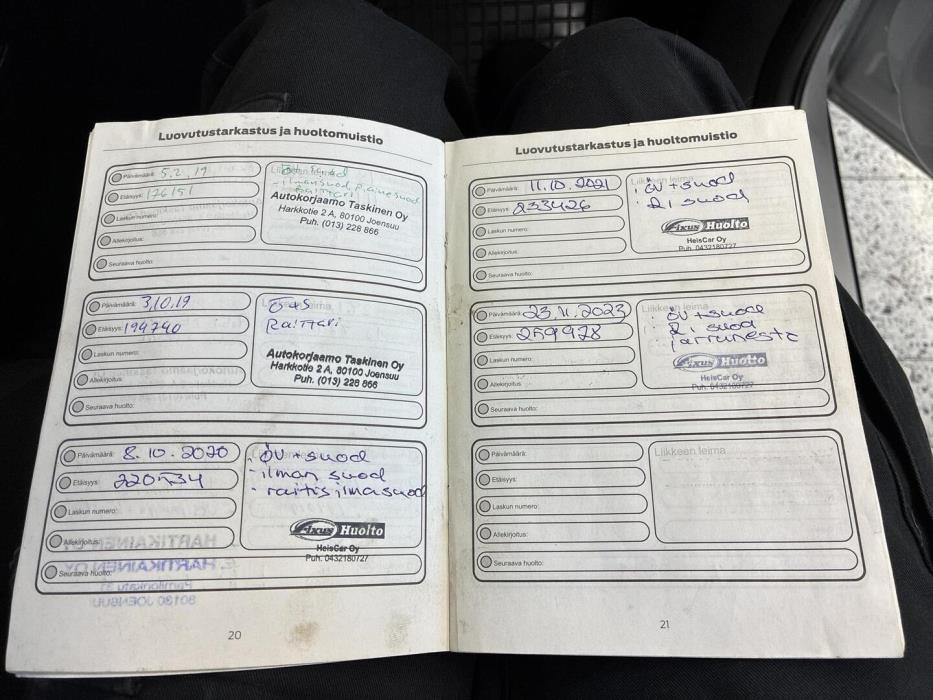 Luovutustarkastus ja huoltomuistio
Päivämäärä: 5.2.19
Etäisyys: 176151
Laskun numero:
Allekirjoitus:
Seuraava huolto:
Liikkeen leima
raitari
Autokorjaamo Taskinen Oy
Harkkotie 2 A, 80100 Joensuu
Puh. (013) 228 866
Päivämäärä: 3.10.19
Etäisyys: 194740
Laskun numero:
Allekirjoitus:
Seuraava huolto:
Ö+S
Raittari
Autokorjaamo Taskinen Oy
Harkkotie 2 A, 80100 Joensuu
Puh. (013) 228 866
Päivämäärä: 8.10.2020
Etäisyys: 220534
Laskun numero:
Allekirjoitus:
Seuraava huolto:
- ÖV + suod
- ilman suod
- raitis ilmasuod
Fixus Huolto
HeisCar Oy
Puh. 0432180727
HARTIKAINEN OY
80100 JOENSUU
20
Luovutustarkastus ja huoltomuistio
Päivämäärä: 11.10.2021
Etäisyys: 233426
Laskun numero:
Allekirjoitus:
Seuraava huolto:
Liikkeen leima
· ÖV + suod
· RI suod
Fixus Huolto
HeisCar Oy
Puh. 0432180727
Päivämäärä: 23.11.2023
Etäisyys: 259978
Laskun numero:
Allekirjoitus:
Seuraava huolto:
Liikkeen leima
· ÖV + suod
· RI suod
· jarruneste
Fixus Huolto
HeisCar Oy
Puh. 0432180727
Päivämäärä:
Etäisyys:
Laskun numero:
Allekirjoitus:
Seuraava huolto:
Liikkeen leima
21